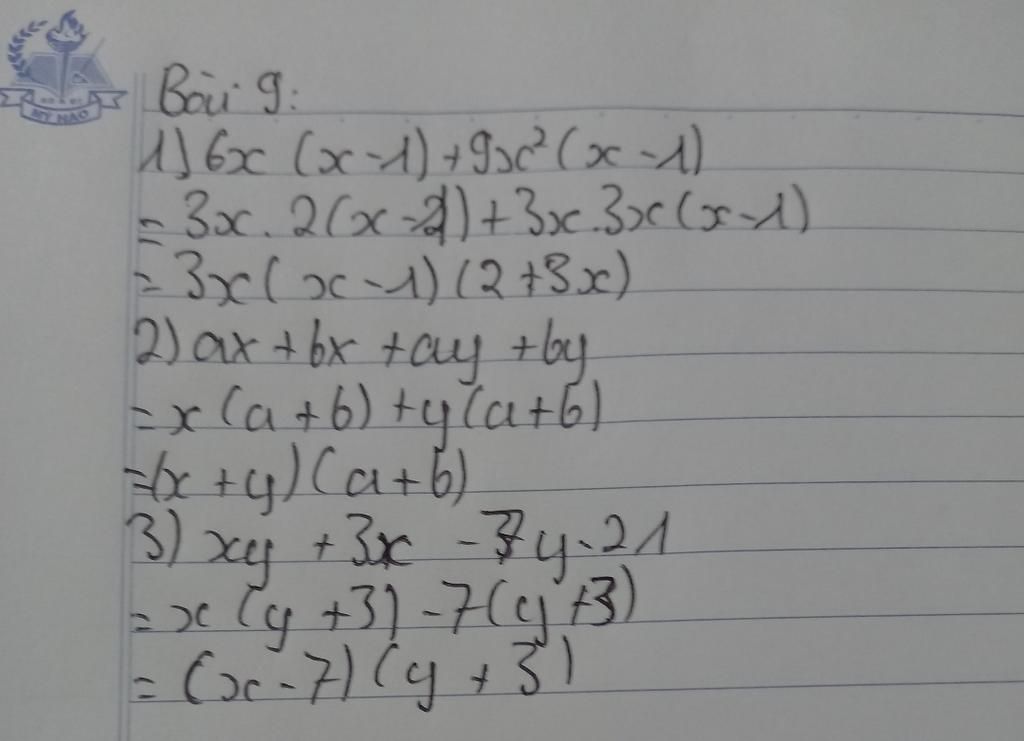 MỸ HÀO
Bài 9:
1) 6x (x - 1) + 9x² (x - 1)
= 3x . 2(x - 1) + 3x . 3x (x - 1)
= 3x ( x - 1) (2 + 3x)
2) ax + bx + ay + by
= x (a + b) + y (a + b)
= (x + y) (a + b)
3) xy + 3x - 7y - 21
= x (y + 3) - 7 (y + 3)
= (x - 7) (y + 3)